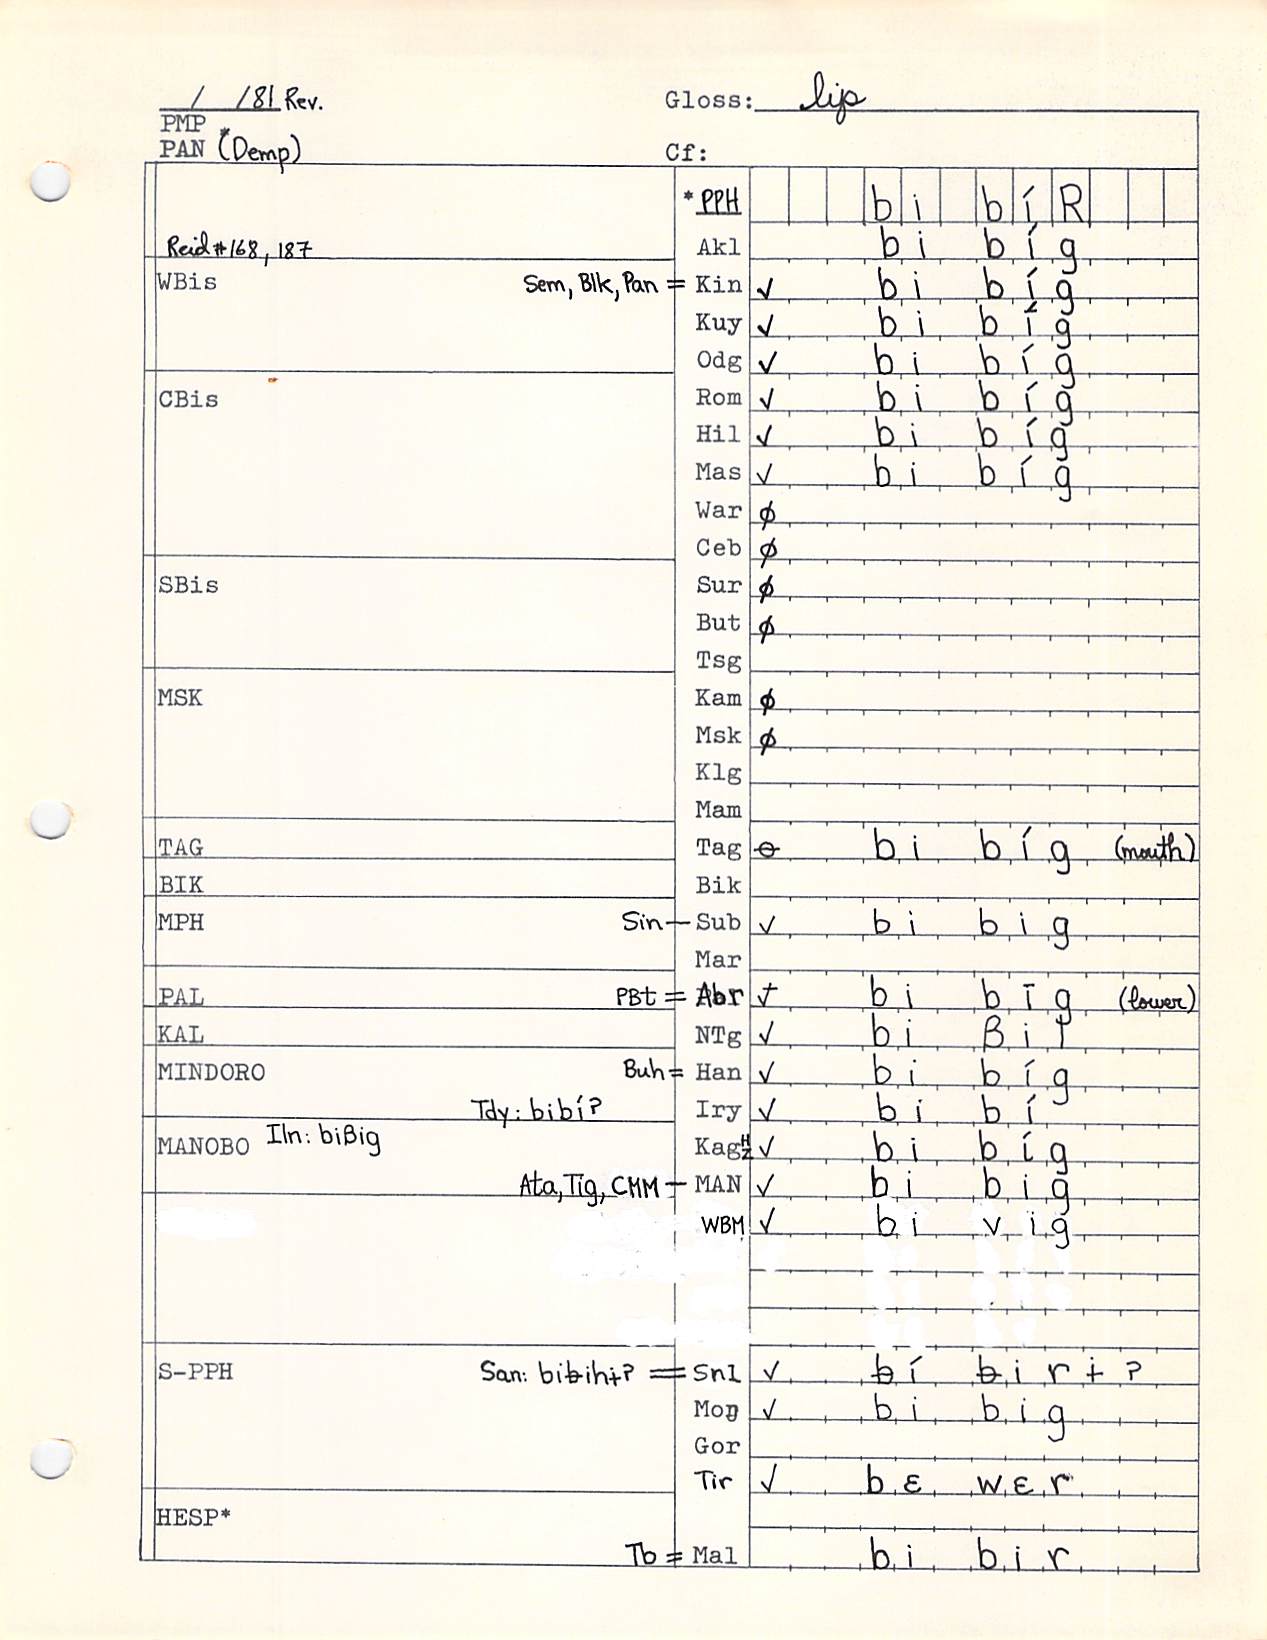 / /81 Rev. Gloss: lip
PMP
PAN *(Demp) Cf:
*PPH bi bíR
Reid #168, 187 Akl bi bíg
WBis Sem, Blk, Pan = Kin ✓ bi bíg
Kuy ✓ bi bíg
Odg ✓ bi bíg
CBis Rom ✓ bi bíg
Hil ✓ bi bíg
Mas ✓ bi bíg
War ∅
Ceb ∅
SBis Sur ∅
But ∅
Tsg
MSK Kam ∅
Msk ∅
Klg
Mam
TAG Tag ⊖ bi bíg (mouth)
BIK Bik
MPH Sin — Sub ✓ bi big
Mar
PAL PBt = Abr ✓ bi bīg (lower)
KAL NTg ✓ bi βi
MINDORO Buh = Han ✓ bi bíg
Tdy: bibíʔ Iry ✓ bi bí
MANOBO Iln: biβig Kag H Z ✓ bi bíg
Ata, Tig, CMM — MAN ✓ bi big
WBM ✓ bi vig
S-PPH San: bibihɨʔ = Snl ✓ ƀí ƀirɨʔ
Moŋ ✓ bi big
Gor
Tir ✓ bɛ wɛr
HESP*
Tb = Mal bi bir